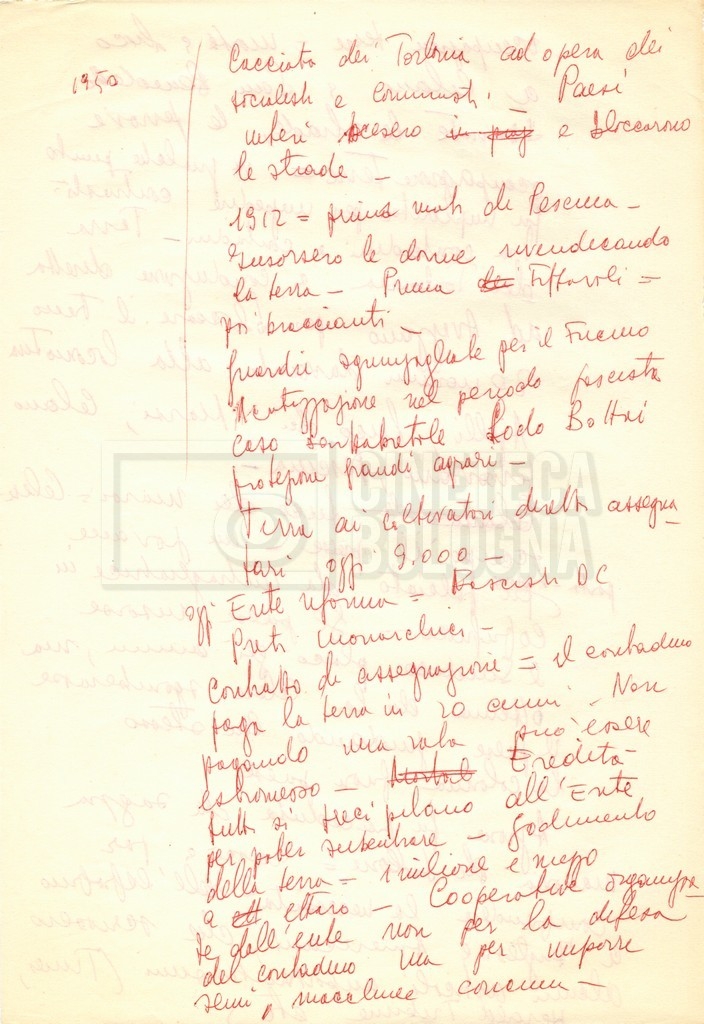 1950
Cacciata dei Torlonia ad opera dei
socialisti e comunisti. _ Paesi
interi scesero in piaz e bloccarono
le strade _
1912 = primi moti di Pescina _
Insorsero le donne rivendicando
la terra _ Prima dei Fittavoli =
poi braccianti _
guardie sguinzagliate per il Fucino
nel periodo fascista
caso Lodo Bottai
protezione grandi agrari _
Terra ai coltivatori diretti assegna_
tari oggi 9.000 _
oggi Ente riforma = DC
Preti monarchici _
Contratto di assegnazione = il contadino
paga la terra in 20 anni. Non
pagando una rata può essere
estromesso _ Eredità _
tutti si precipitano all'Ente
per poter subentrare _ godimento
della terra = 1 milione e mezzo
a ett ettaro _ Cooperative organizza_
te dall'ente non per la difesa
del contadino ma per imporre
semi, macchine concimi _
CINETECA
BOLOGNA